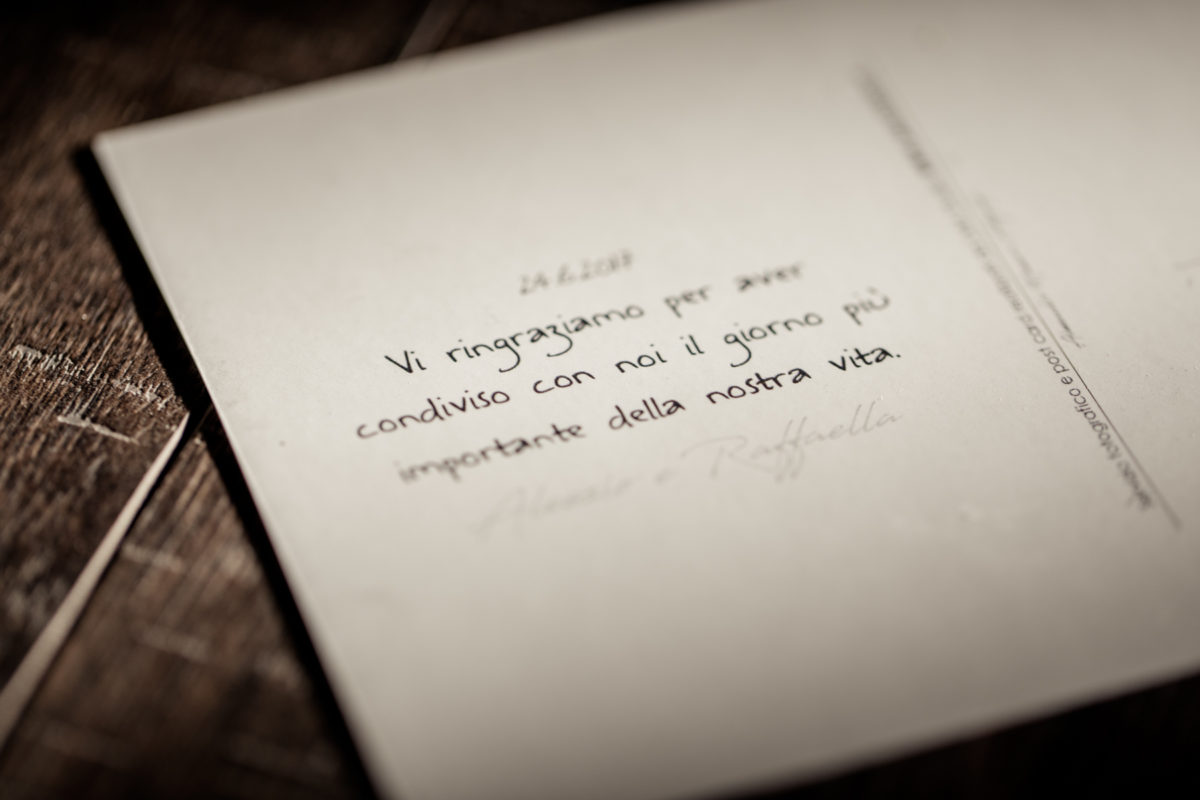 24.6.2017
Vi ringraziamo per aver
condiviso con noi il giorno più
importante della nostra vita.
Alessio e Raffaella
servizio fotografico e post card